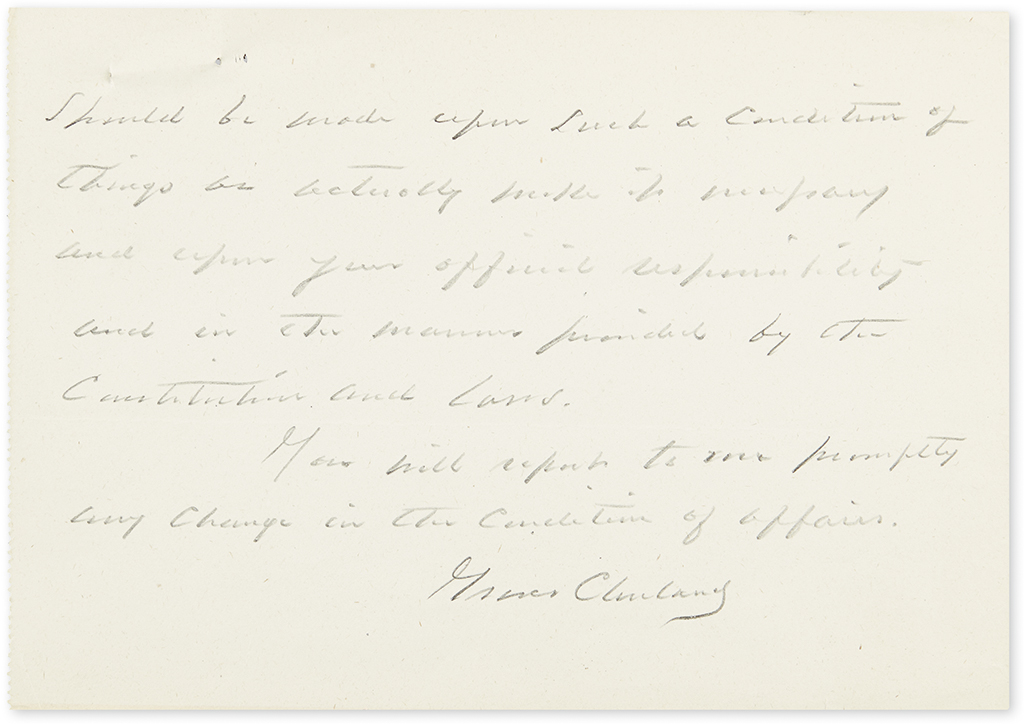 Should be made upon such a condition of
things as actually make it necessary
and upon your official responsibility
and in the manner provided by the
Constitution and laws.
You will report to me promptly
any change in the condition of affairs.
Grover Cleveland